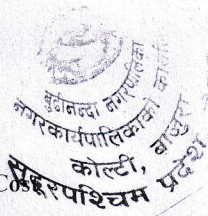 बुढीनन्दा नगरपालिका
नगरकार्यपालिकाको कार्यालय
कोल्टी, बाजुरा
सुदूरपश्चिम प्रदेश